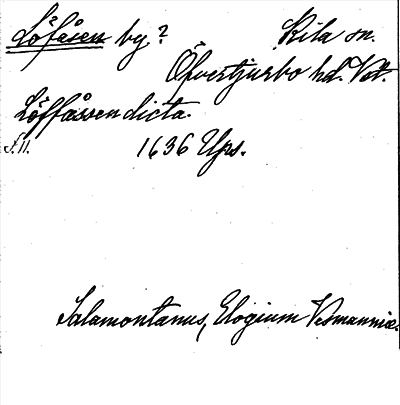 Löfåsen by? Kila sn.
Öfvertjurbo hd. Vst.
Löffåssen dicta.
S. 11. 1636 Ups.
Salamontanus, Elogium Vesmanniæ.